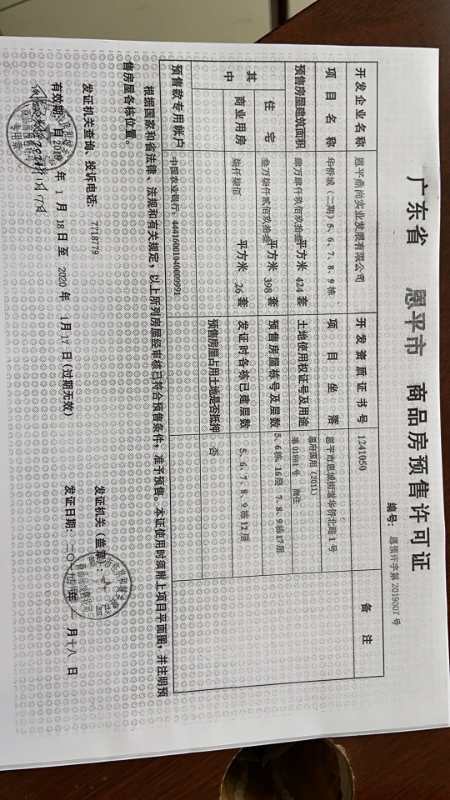 广东省 恩平市 商品房预售许可证
编号: 恩预许字第 2019001 号
开发企业名称 恩平鼎尚实业发展有限公司 开发资质证书号 1241050 备注
项目名称 华侨城(二期)5、6、7、8、9栋 项目坐落 恩平市恩城街道华侨北路1号
预售房屋建筑面积 平方米 424 套 土地使用权证号及用途 恩府国用(2011)
其中
住宅 平方米 398 套 预售房屋栋号及层数 5、6栋,16层 7、8、9栋17层
商业用房 柒仟柒佰 平方米 26 套 发证时各栋已建层数 5、6、7、8、9栋12层
预售款专用账户 中国农业银行: 44416001040009991 预售房屋占用土地是否抵押 否
根据国家和省法律、法规和有关规定,以上所列房屋经审核已符合预售条件,准予预售。本证使用时须附上项目平面图,并注明预
售房屋各栋位置。
发证机关查询、投诉电话: 7718779 发证机关(盖章):
有效期: 自 2019 年 1 月 18 日至 2020 年 1 月 17 日(过期无效) 发证日期: 二〇一九年一月十八日